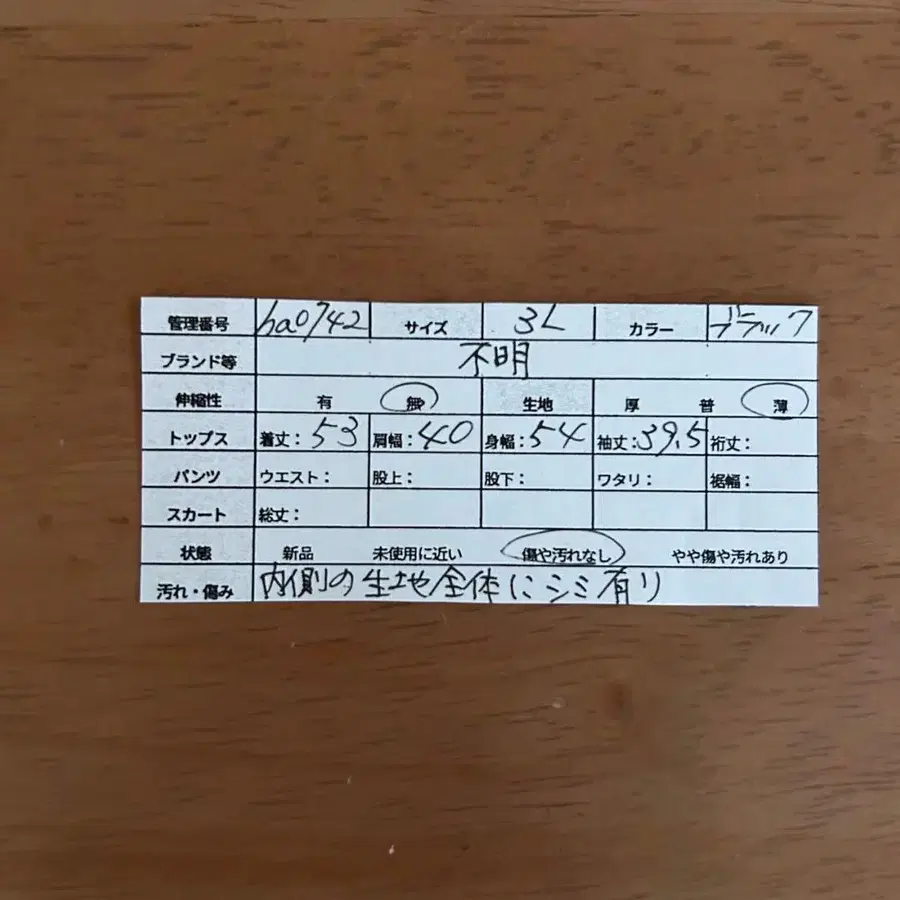 管理番号 ha0742 サイズ 3L カラー ブラック
ブランド等 不明
伸縮性 有 無 生地 厚 普 薄
トップス 着丈：53 肩幅：40 身幅：54 袖丈：39.5 裄丈：
パンツ ウエスト： 股上： 股下： ワタリ： 裾幅：
スカート 総丈：
状態 新品 未使用に近い 傷や汚れなし やや傷や汚れあり
汚れ・傷み 内側の生地全体にシミ有り